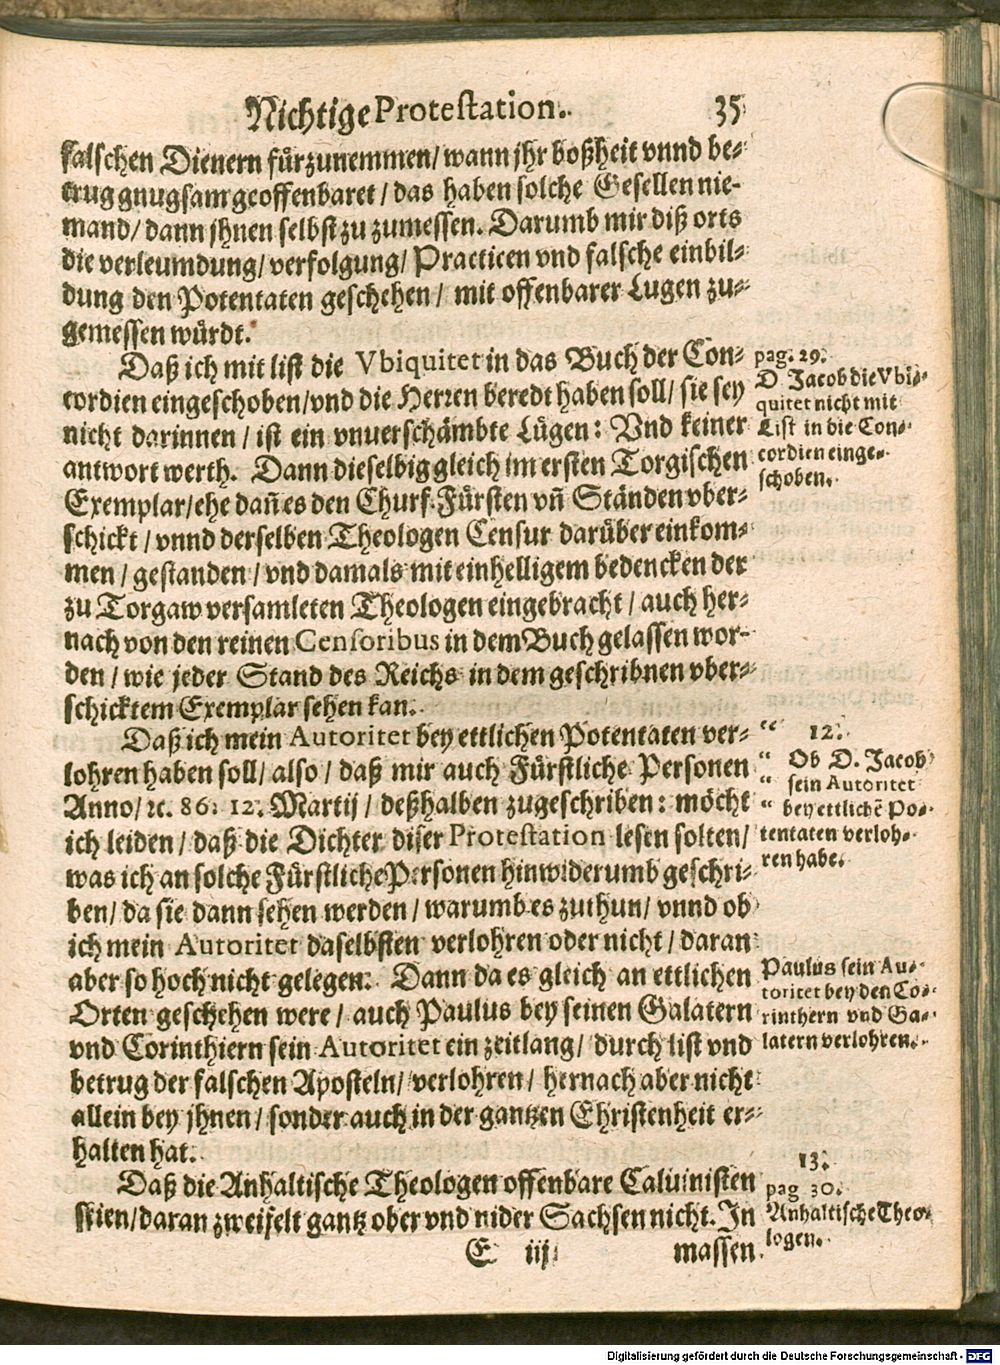 Nichtige Protestation. 35
falschen Dienern fürzunemmen/ wann jhr boßheit vnnd be-
trug gnugsam geoffenbaret / das haben solche Gesellen nie-
mand/ dann jhnen selbst zu zumessen. Darumb mir diß orts
die verleumdung/ verfolgung/ Practicen vnd falsche einbil-
dung den Potentaten geschehen / mit offenbarer Lugen zu-
gemessen würdt.
Daß ich mit list die Vbiquitet in das Buch der Con-
cordien eingeschoben/ vnd die Herren beredt haben soll/ sie sey
nicht darinnen / ist ein vnuerschämbte Lügen: Vnd keiner
antwort werth. Dann dieselbig gleich im ersten Torgischen
Exemplar/ ehe dañ es den Churf. Fürsten vñ Ständen vber-
schickt / vnnd derselben Theologen Censur darüber einkom-
men / gestanden / vnd damals mit einhelligem bedencken der
zu Torgaw versamleten Theologen eingebracht / auch her-
nach von den reinen Censoribus in dem Buch gelassen wor-
den / wie jeder Stand des Reichs in dem geschribnen vber-
schicktem Exemplar sehen kan.
pag. 29.
D. Jacob die Vbi-
quitet nicht mit
List in die Con-
cordien einge-
schoben.
Daß ich mein Autoritet bey ettlichen Potentaten ver-
lohren haben soll/ also / daß mir auch Fürstliche Personen
Anno/ ꝛc. 86. 12. Martij / deßhalben zugeschriben: möcht
ich leiden / daß die Dichter diser Protestation lesen solten/
was ich an solche Fürstliche Personen hinwiderumb geschri-
ben/ da sie dann sehen werden / warumb es zuthun/ vnnd ob
ich mein Autoritet daselbsten verlohren oder nicht / daran
aber so hoch nicht gelegen. Dann da es gleich an ettlichen
Orten geschehen were / auch Paulus bey seinen Galatern
vnd Corinthiern sein Autoritet ein zeitlang/ durch list vnd
betrug der falschen Aposteln/ verlohren / hernach aber nicht
allein bey jhnen / sonder auch in der gantzen Christenheit er-
halten hat.
“ 12.
“ Ob D. Jacob
“ sein Autoritet
“ bey ettlichē Po-
tentaten verloh-
ren habe.
Paulus sein Au-
toritet bey den Co-
rinthern vnd Ga-
latern verlohren.
Daß die Anhaltische Theologen offenbare Caluinisten
seien/ daran zweifelt gantz ober vnd nider Sachsen nicht. In
13.
pag 30.
Anhaltische Theo-
logen.
E iij massen
Digitalisierung gefördert durch die Deutsche Forschungsgemeinschaft - DFG